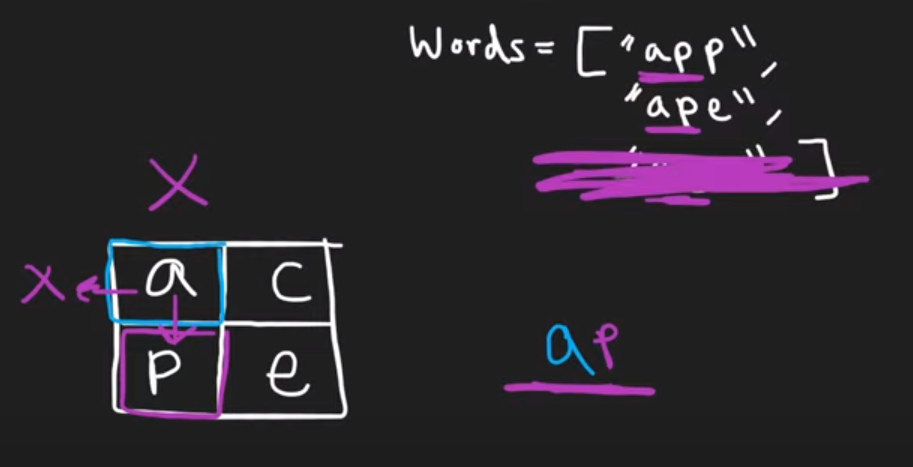 Words = ["app",
"ape",
" ]
X
X a c
p e
ap